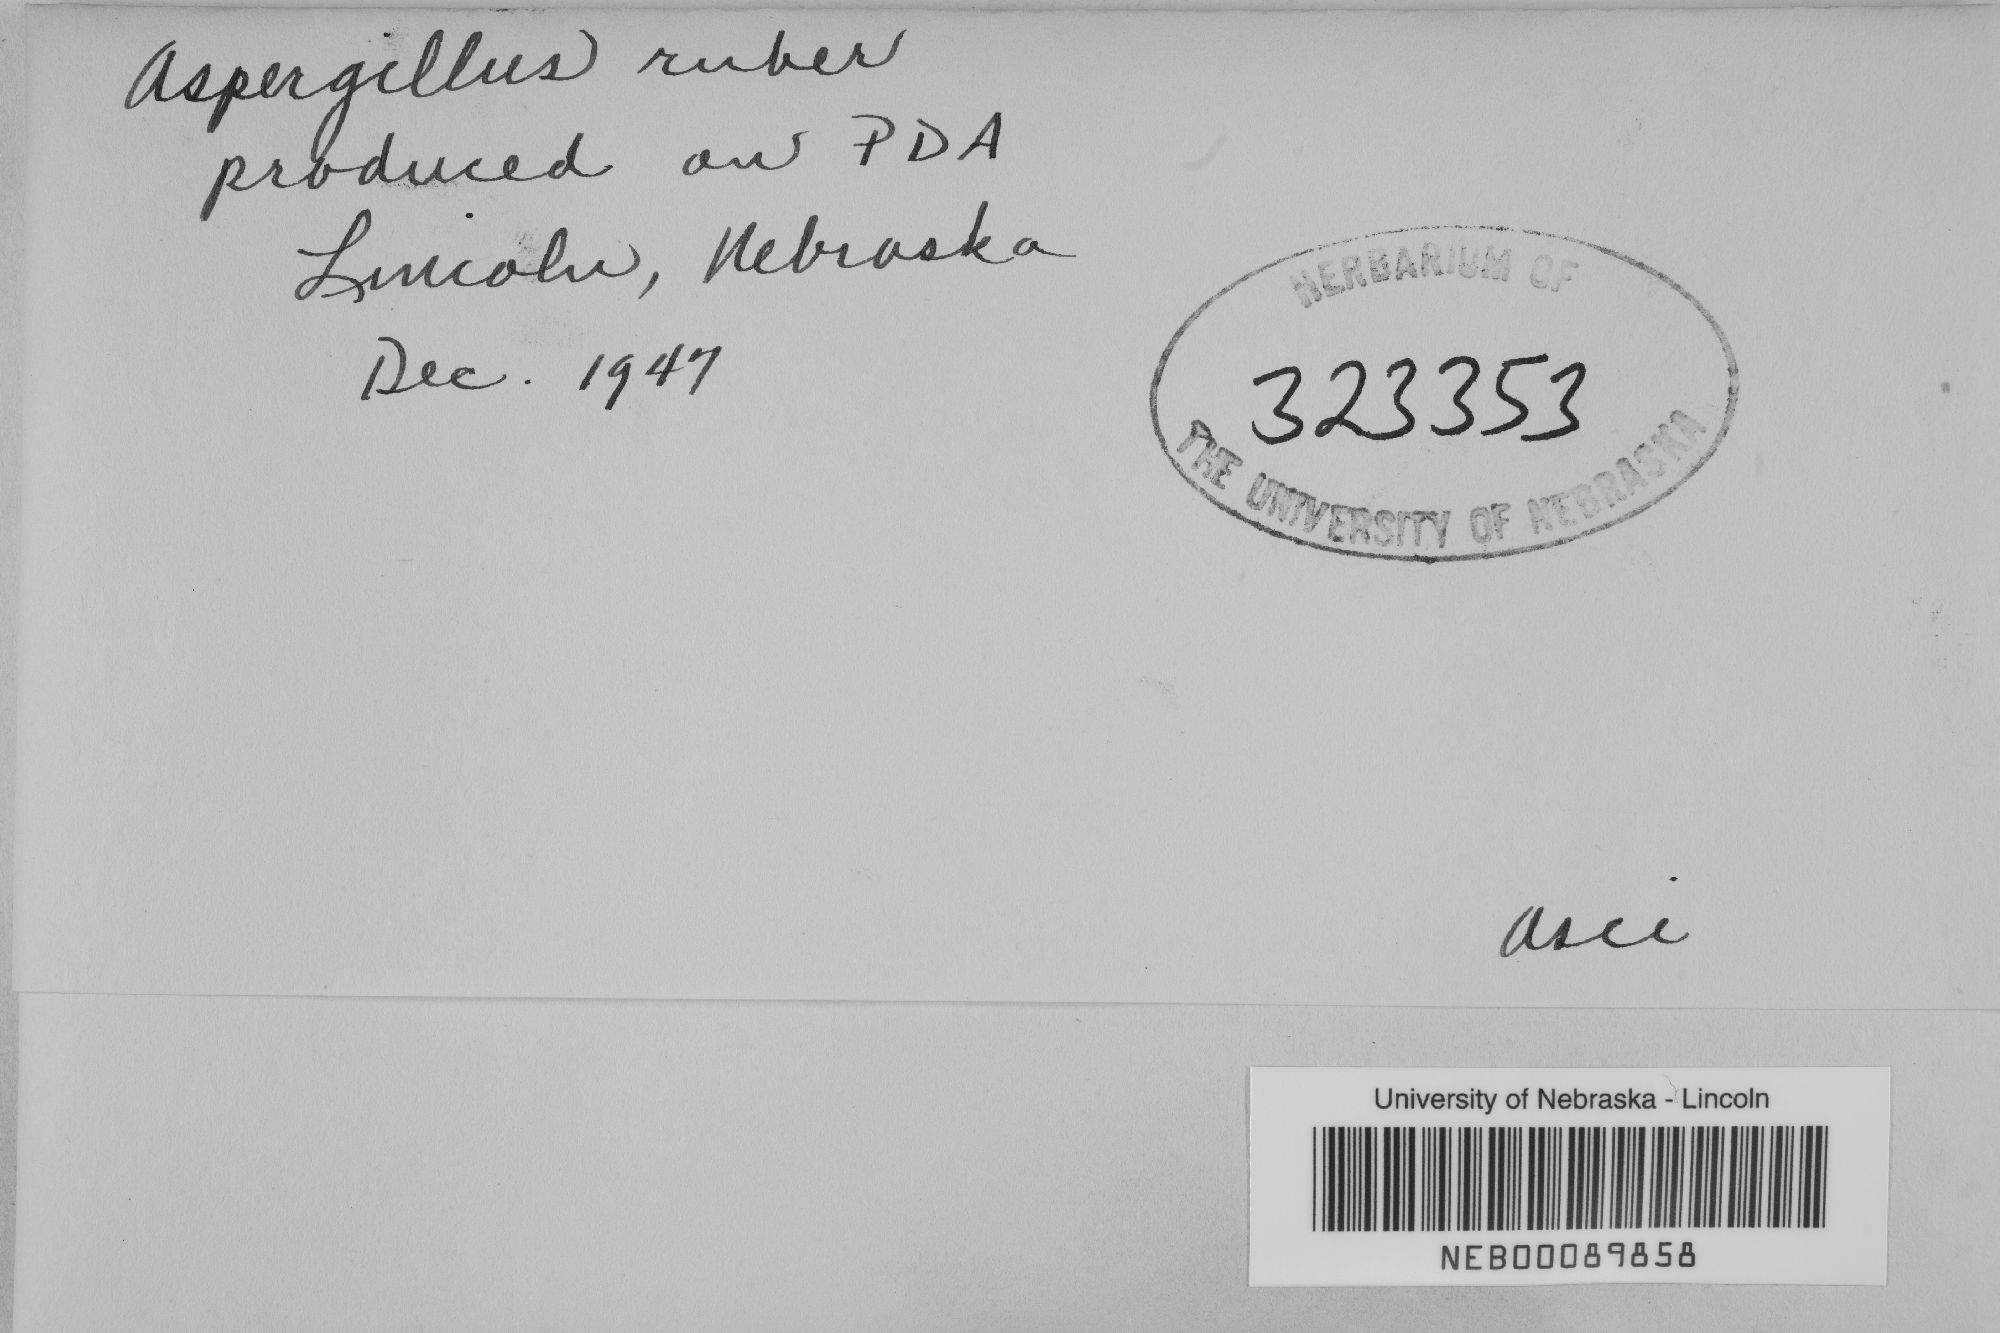 Aspergillus ruber
produced on PDA
Lincoln, Nebraska
Dec. 1947
HERBARIUM OF
323353
THE UNIVERSITY OF NEBRASKA
Asci
University of Nebraska - Lincoln
NEB00089858